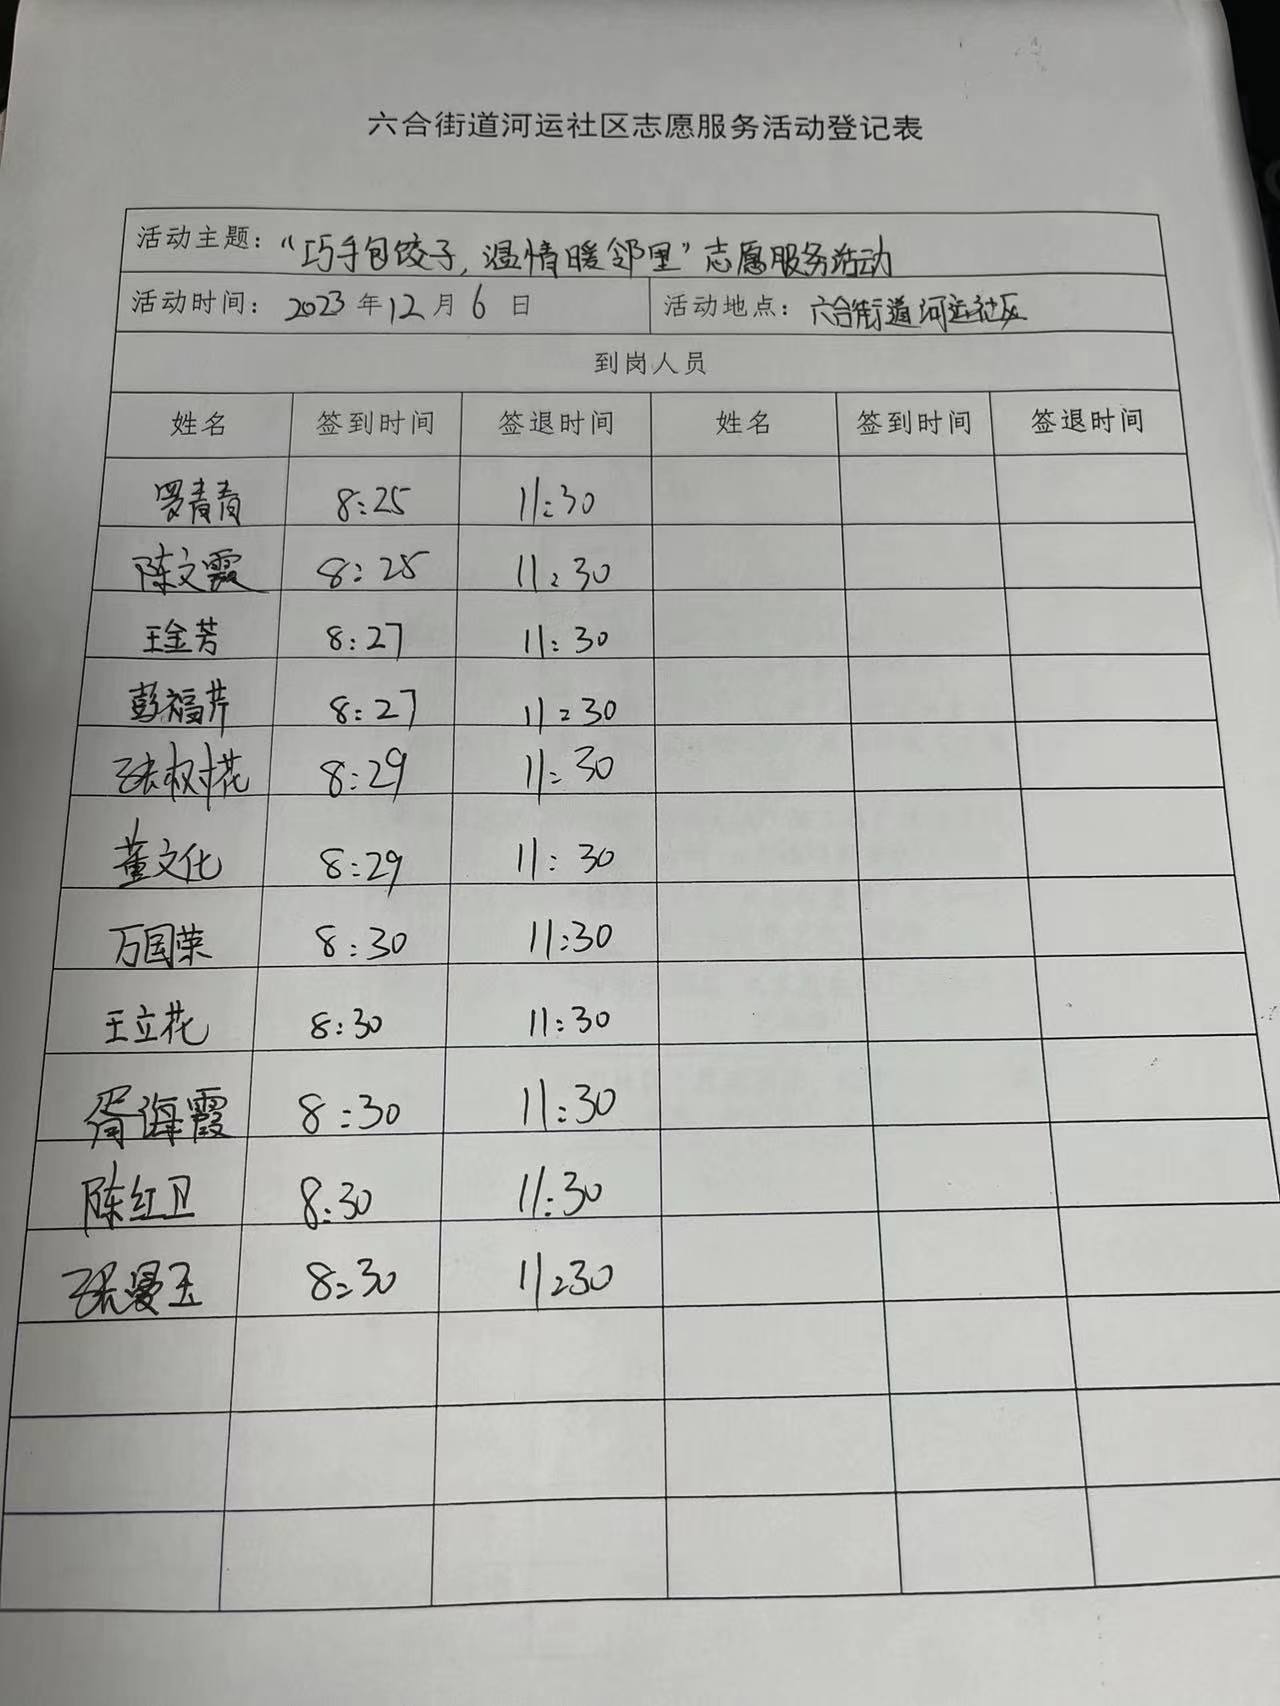 六合街道河运社区志愿服务活动登记表
活动主题：“巧手包饺子，温情暖邻里”志愿服务活动
活动时间：2023年12月6日 活动地点：六合街道河运社区
到岗人员
姓名 签到时间 签退时间 姓名 签到时间 签退时间
罗青青 8:25 11:30
陈文霞 8:25 11:30
王金芳 8:27 11:30
彭福芹 8:27 11:30
张树花 8:29 11:30
董文化 8:29 11:30
万国荣 8:30 11:30
王立花 8:30 11:30
胥海霞 8:30 11:30
陈红卫 8:30 11:30
张曼玉 8:30 11:30